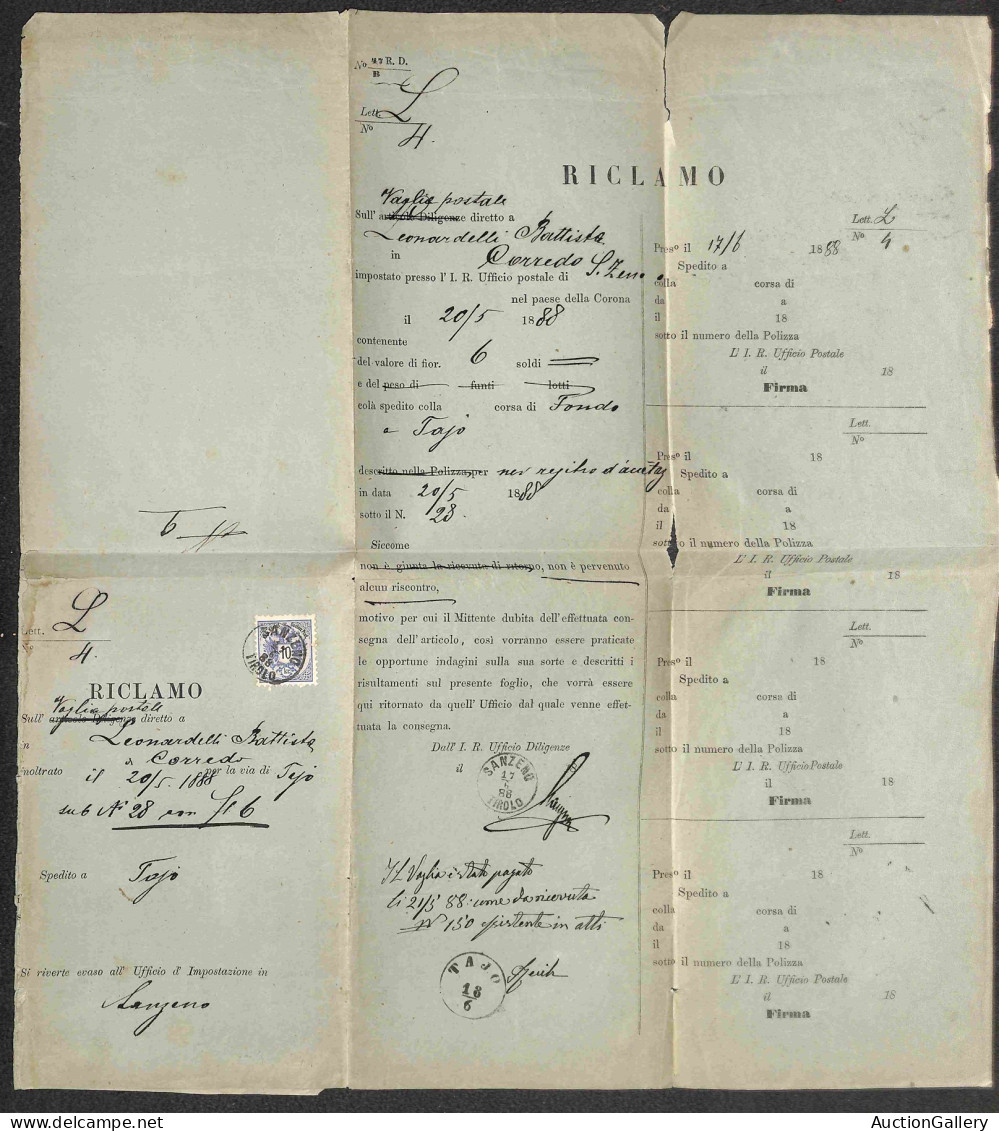 No 47 R. D.
B
Lett. L
No 4
RICLAMO
Vaglia postale
Sull' articolo Diligenze diretto a
Leonardelli Battista
in Corredo
impostato presso l' I. R. Ufficio postale di S. Zeno
nel paese della Corona
il 20/5 1888
contenente
del valore di fior. 6 soldi
e del peso di funti lotti
colà spedito colla corsa di Fondo
a Tajo
descritto nella Polizza per nel
in data 20/5 1888
sotto il N. 28
Siccome
non è giunta la ricevuta di ritorno, non è pervenuto
alcun riscontro,
motivo per cui il Mittente dubita dell'effettuata con-
segna dell'articolo, così vorranno essere praticate
le opportune indagini sulla sua sorte e descritti i
risultamenti sul presente foglio, che vorrà essere
qui ritornato da quell' Ufficio dal quale venne effet-
tuata la consegna.
Dall' I. R. Ufficio Diligenze
il
SANZENO
17
6
88
TIROLO
Il Vaglia è stato pagato
li 21/5 88 come da ricevuta
N° 150 esistente in atti
TAJO
18
6
Lett. L
No 4
Pres° il 17/6 1888
Spedito a
colla corsa di
da a
il 18
sotto il numero della Polizza
L' I. R. Ufficio Postale
il 18
Firma
Lett.
No
Pres° il 18
Spedito a
colla corsa di
da a
il 18
sotto il numero della Polizza
L' I. R. Ufficio Postale
il 18
Firma
Lett.
No
Pres° il 18
Spedito a
colla corsa di
da a
il 18
sotto il numero della Polizza
L' I. R. Ufficio Postale
il 18
Firma
Lett.
No
Pres° il 18
Spedito a
colla corsa di
da a
il 18
sotto il numero della Polizza
L' I. R. Ufficio Postale
il 18
Firma
Lett. L
No 4
SANZENO
88
TIROLO
10
RICLAMO
Vaglia postale
Sull' articolo Diligenze diretto a
in Leonardelli Battista
a Corredo
inoltrato il 20/5 1888 per la via di Tajo
sub N° 28 con f 6
Spedito a Tajo
Si riverte evaso all' Ufficio d' Impostazione in
Sanzeno
AuctionGallery